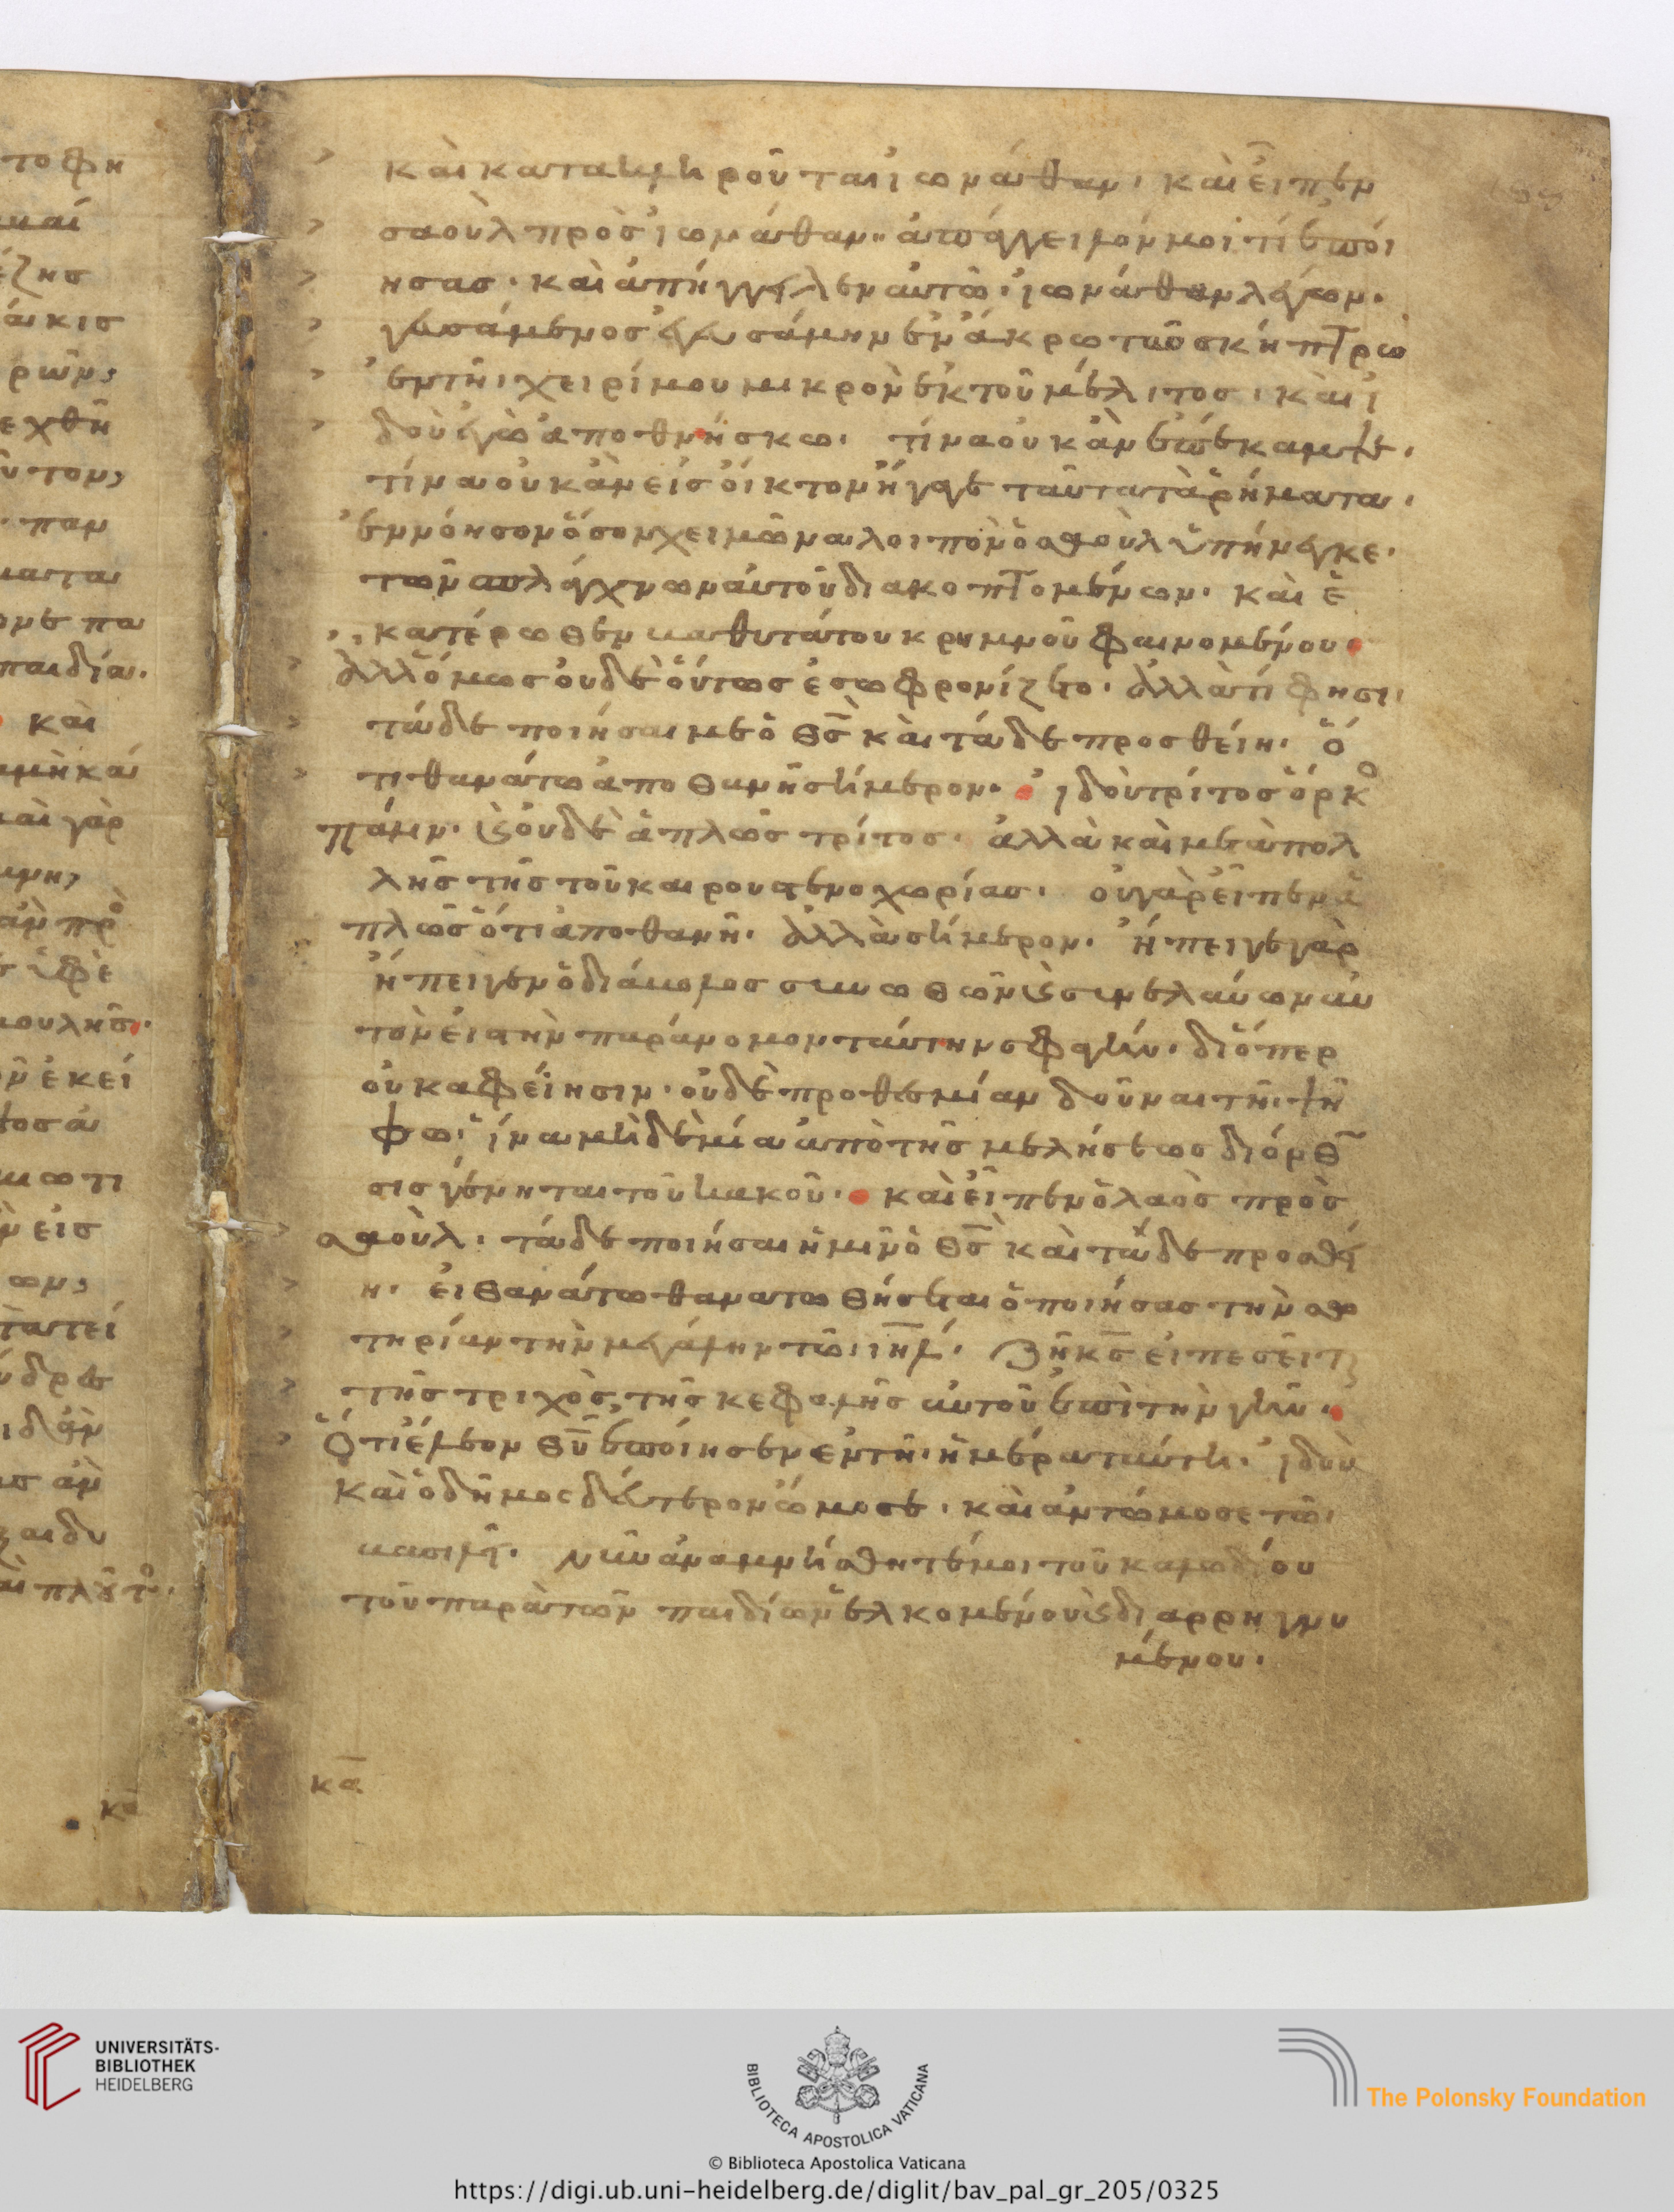 τοφη
έζησ
άκισ
ρῶν;
εχθῆ
παν
παιδία.
καὶ
καὶ γὰρ
ἐκεί
εἰσ
ων;
κα
καὶ κατακληροῦται ἰωνάθαν. καὶ εἶπεν
σαοὺλ πρὸσ ἰωνάθαν. ἀπάγγειλόν μοι τί ἐποί
ησασ. καὶ ἀπήγγειλεν αὐτῶ. ἰωνάθαν λέγων.
γευσάμενοσ ἐγευσάμην ἐν ἄκρω τῶ σκήπτρω
ἐν τῆι χειρί μου μικρὸν ἐκ τοῦ μέλιτοσ. καὶ ἰ
δοὺ ἐγὼ ἀποθνήσκω. τίνα οὐκ ἂν ἐπέκαμψε.
τίνα οὐκ ἂν εἰσ οἶκτον ἤγαγε ταῦτα τὰ ῥήματα.
ἐννόησον ὅσον χειμῶνα λοιπὸν ὁ σαοὺλ ὑπήνεγκε.
τῶν σπλάγχνων αὐτοῦ διακοπτομένων. καὶ ἑ
κατέρωθεν βαθυτάτου κρημνοῦ φαινομένου
ἀλλ' ὅμωσ οὐδὲ οὕτωσ ἐσωφρονίζετο. ἀλλὰ τί φησι.
τάδε ποιήσαι με ὁ θσ καὶ τάδε προσθείη. ὅ
τι θανάτω ἀποθανῆ σήμερον. ἰδοὺ τρίτοσ ὅρκο
πάλιν. καὶ οὐδὲ ἁπλῶσ τρίτοσ. ἀλλὰ καὶ μετὰ πολ
λῆσ τῆσ τοῦ καιρου στενοχωρίασ. οὐ γὰρ εἶπεν ἁ
πλῶσ ὅτι ἀποθανῆ. ἀλλὰ σήμερον. ἤπειγε γὰρ
ἤπειγεν ὁ διάβολοσ συνωθῶν καὶ συνελαύνων αὐ
τὸν εἰσ τὴν παράνομον ταύτην σφαγήν. διόπερ
οὐκ ἀφείησιν. οὐδὲ προθεσμίαν δοῦναι τῆι ψή
φω. ἵνα μὴ δεμία ἀπὸ τῆσ μελήσεωσ διόρθω
σισ γένηται τοῦ κακοῦ. καὶ εἶπεν ὁ λαὸσ πρὸσ
σαοὺλ. τάδε ποιήσαι ἡμῖν ὁ θσ καὶ τάδε προσθεί
η. εἰ θανάτω θανατωθήσεται ὁ ποιήσασ τὴν σω
τηρίαν τὴν μεγάλην τῶι ιηλ. ζῆ κσ εἰ πεσεῖται
τῆσ τριχὸσ τῆσ κεφαλῆσ αὐτοῦ ἐπὶ τὴν γῆν.
Ὅτι ἔλεον θυ ἐποίησεν ἐν τῆι ἡμέρα ταύτη. ἰδοὺ
καὶ ὁ δῆμοσ δεύτερον ὤμοσε. καὶ ἀντώμοσε τῶι
βασιλεῖ. νῦν ἀναμνήσθητέ μοι τοῦ καλωδίου
τοῦ παρὰ τῶν παιδίων ἑλκομένου καὶ διαρρηγνυ
μένου.
κα
UNIVERSITÄTS-
BIBLIOTHEK
HEIDELBERG
BIBLIOTECA APOSTOLICA VATICANA
© Biblioteca Apostolica Vaticana
The Polonsky Foundation
https://digi.ub.uni-heidelberg.de/diglit/bav_pal_gr_205/0325